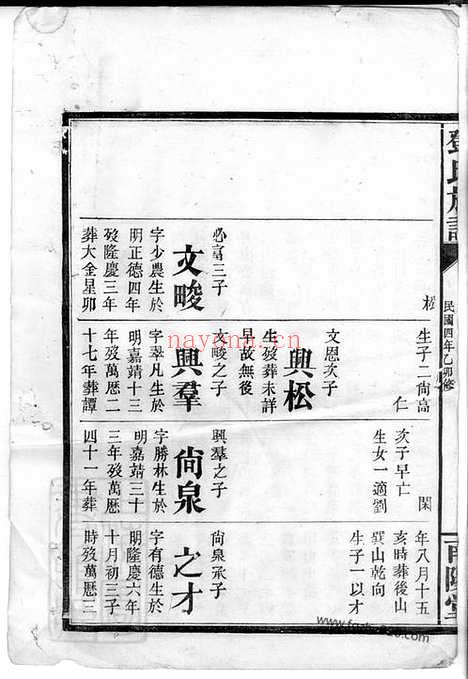 鄧氏族譜
民國四年乙卯修
南陽堂
松
必富三子
文畯
字少農生於
明正德四年
歿隆慶三年
葬大金星卯
生子二尙高
仁
文恩次子
興松
生歿葬未詳
早故無後
文畯之子
興羣
字翠凡生於
明嘉靖十三
年歿萬曆二
十七年葬譚
閑
次子早亡
生女一適劉
興羣之子
尙泉
字勝林生於
明嘉靖三十
三年歿萬曆
四十一年葬
年八月十五
亥時葬後山
巽山乾向
生子一以才
尙泉承子
之才
字有德生於
明隆慶六年
十月初三子
時歿萬曆三
nayona.cn